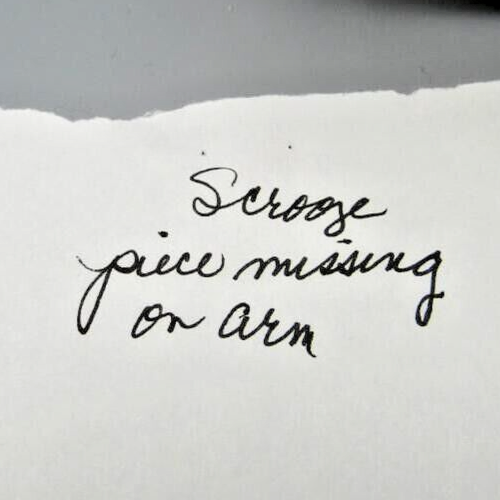 Scrooge
piece missing
on arm